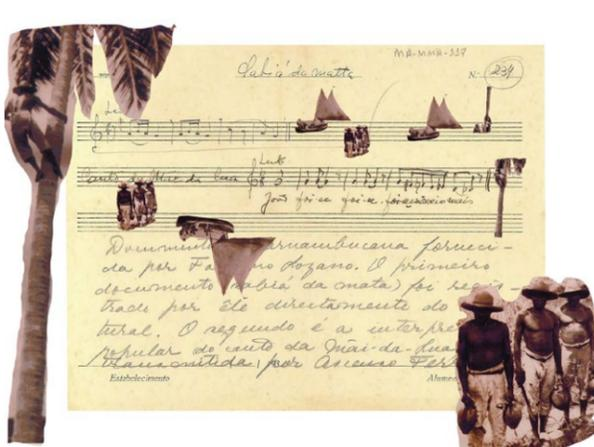 MA-MMA-117
Sabiá da matta
N.º 234
Lento
Canto da Mãe da Lua Lento
João foi-se foi-se. foi mais
Documento Pernambucana forneci-
da por Fa no Lozano. O primeiro
documento (sabiá da mata) foi regis-
trado por Ele directamente do
tural. O segundo é a interpre
popular do canto da Mãi-da-Lua
transmitida, por Ascenso Fer
Estabelecimento Alumno